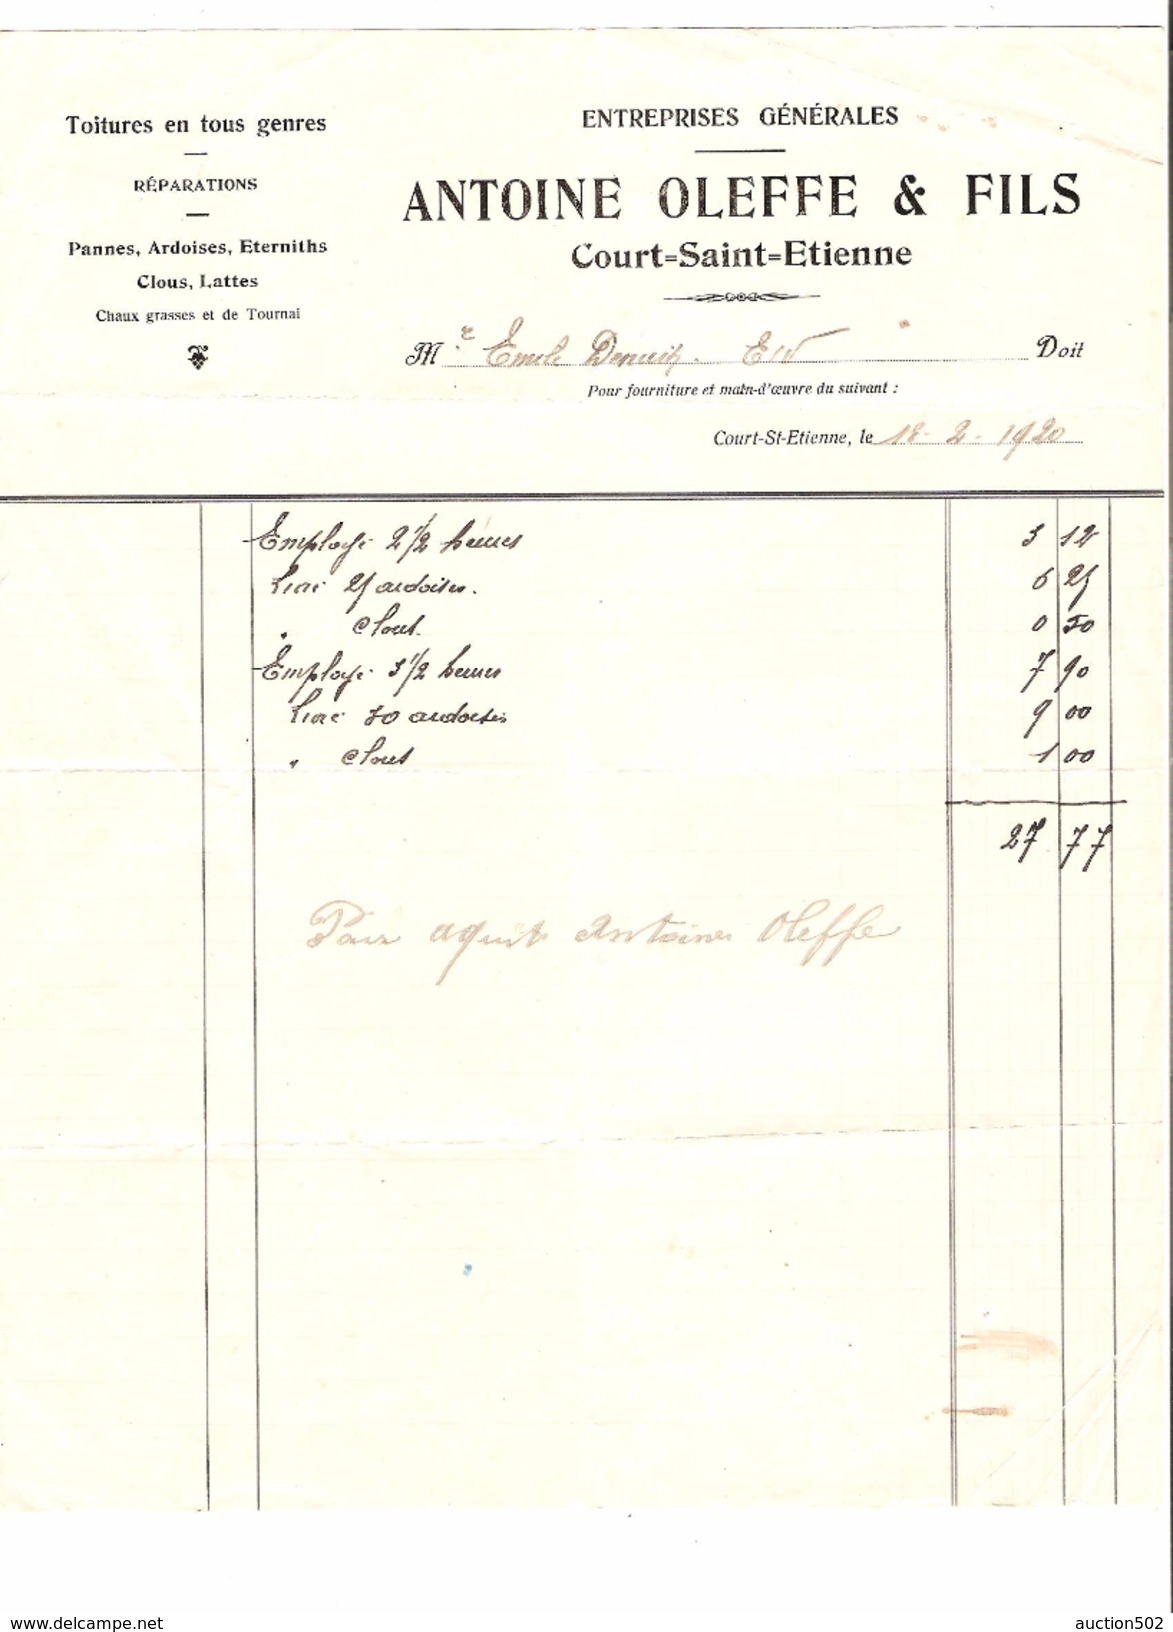 Toitures en tous genres
RÉPARATIONS
Pannes, Ardoises, Eterniths
Clous, Lattes
Chaux grasses et de Tournai
ENTREPRISES GÉNÉRALES
ANTOINE OLEFFE & FILS
Court=Saint=Etienne
Mr Emile Doit
Pour fourniture et main-d'œuvre du suivant :
Court-St-Etienne, le 18-2-1920
Employé 2 1/2 heures 3 12
25 ardoises. 6 25
" Clous 0 50
Employé 3 1/2 heures 7 90
30 ardoises 9 00
" Clous 1 00
27 77
Pour aquit Antoine Oleffe
www.delcampe.net
auction502